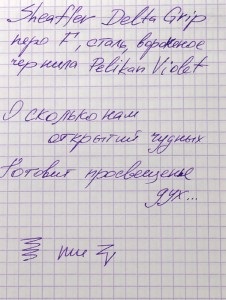 Sheaffer Delta Grip
перо F, сталь, вороненое
чернила Pelikan Violet
О сколько нам
открытий чудных
Готовит просвещенья
дух...